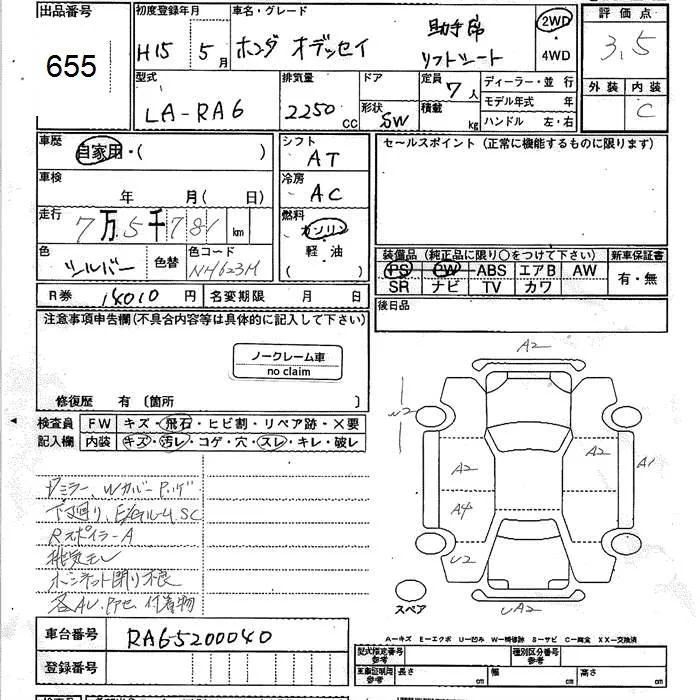 出品番号
655
初度登録年月
H15 5月
車名・グレード
ホンダ オデッセイ
助手席
リフトシート
2WD
・
4WD
評価点
3,5
外装 内装
C
型式
LA-RA6
排気量
2250 CC
ドア
形状
SW
定員 7人
積載 kg
ディーラー・並行
モデル年式 年
ハンドル 左・右
車歴
自家用・( )
車検
年 月( 日)
走行
7万5千781 km
色
シルバー
色替
色コード
NH623M
シフト
AT
冷房
AC
燃料
ガソリン
軽・油
( )
セールスポイント (正常に機能するものに限ります)
装備品 (純正品に限り○をつけて下さい)
新車保証書
PS PW ABS エアB AW
SR ナビ TV カワ
有・無
R券 14010 円
名変期限 月 日
後日品
注意事項申告欄(不具合内容等は具体的に記入して下さい)
ノークレーム車
no claim
修復歴 有 〔箇所 〕
検査員
記入欄
FW キズ・飛石・ヒビ割・リペア跡・×要
内装 キズ・汚レ・コゲ・穴・スレ・キレ・破レ
下廻り
RスポイラーA
排気モレ
ボンネット開り不良
付着物
A2
U2
A2
A2
A1
A4
U2
UA2
スペア
A—キズ E—エクボ U—凹み W—補修跡 S—サビ C—腐食 XX—交換済
車台番号
RA6-5200040
登録番号
型式指定番号
参考
種別区分番号
参考
車庫証明用
参考
長さ cm
幅 cm
高さ cm